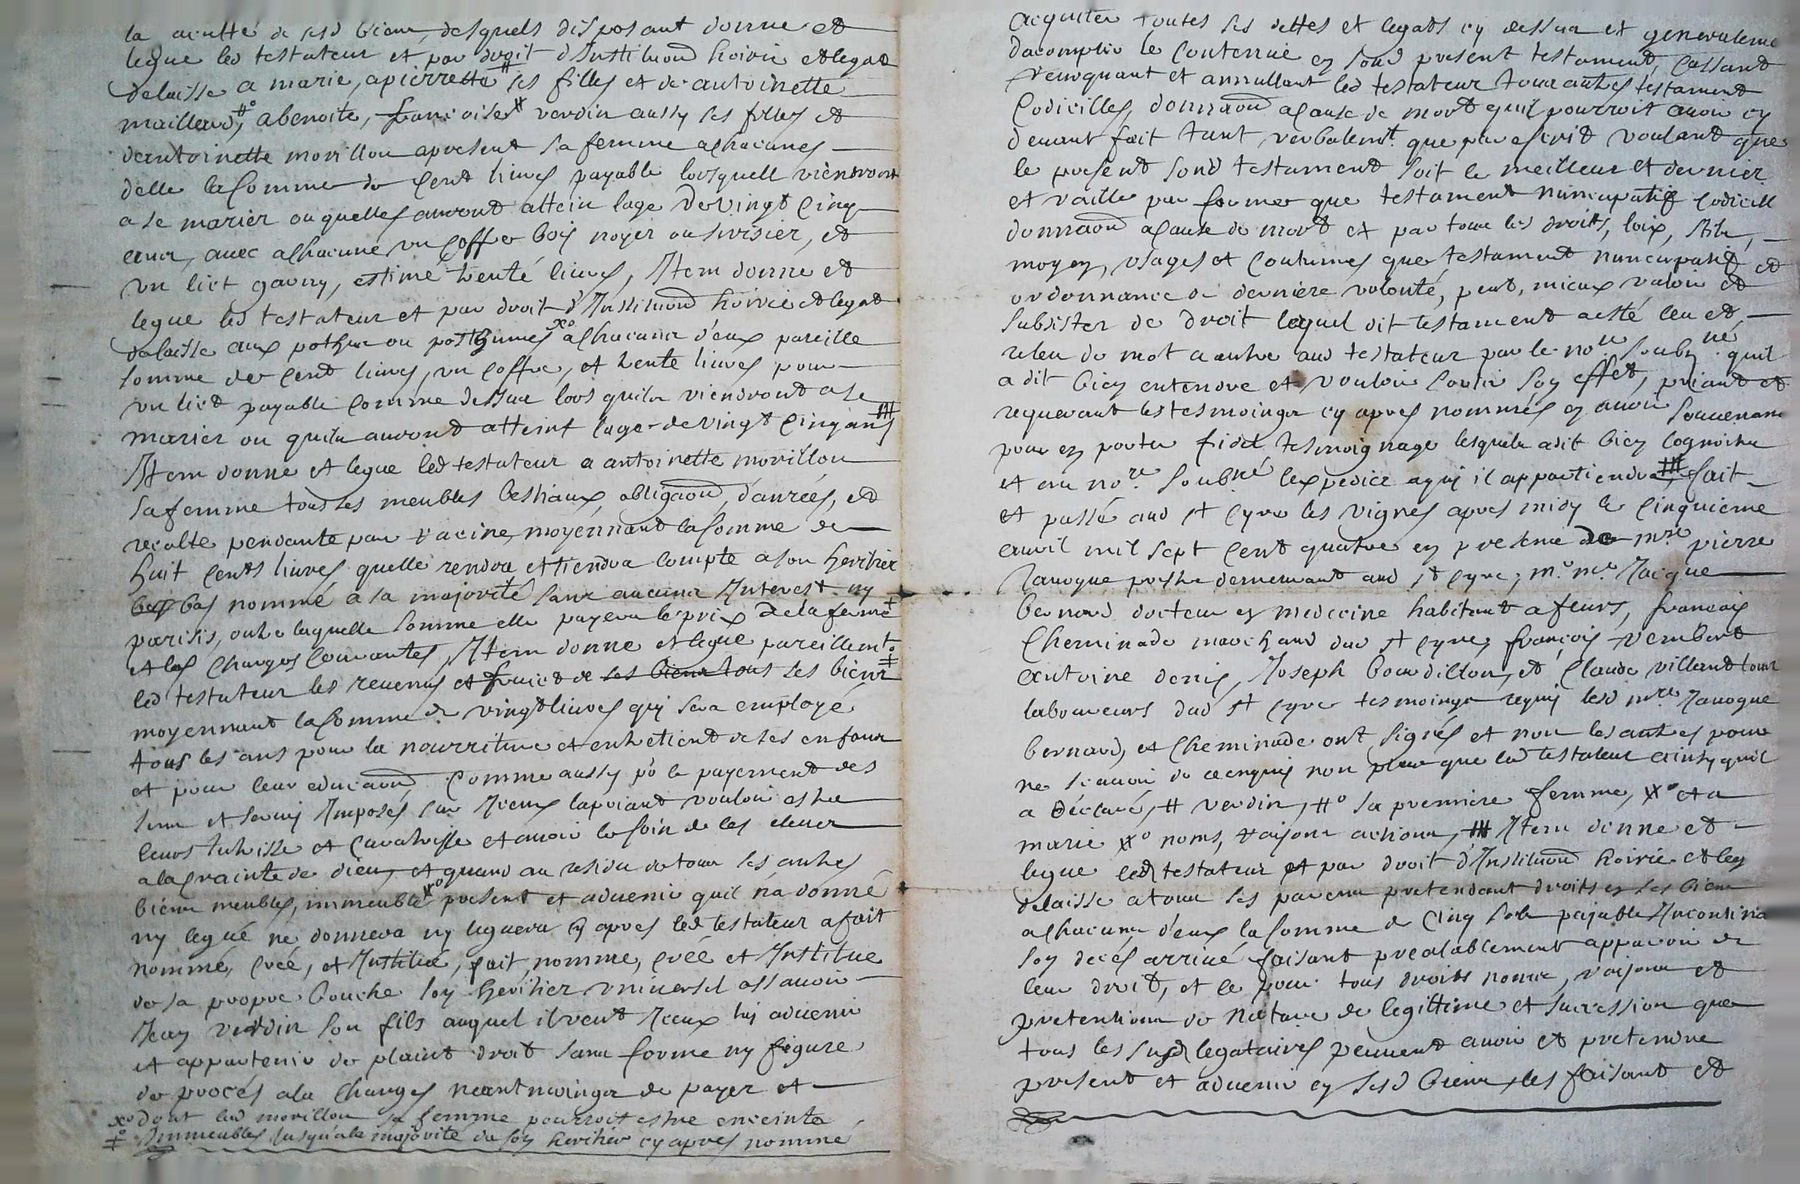 la acultté de sesd biens, desquels disposant donne et
legue led testateur et par droit d'Institu͠on hoirie et legat
delaisse a marie, a pierrette # ses filles et de antoinette
maillard, #° a benoite, francoise X verdin aussy ses filles et
de antoinette morillon apresent sa femme a chacunes
delle la somme de cent livres payable lorsquell viendront
a se marier ou quelles auront attein lage de vingt cinq
ans, avec a chacune un coffre bois noyer ou serisier, et
un lict garny, estimé trente livres, Item donne et
legue led testateur et par droit d'Institu͠on hoirie et legat
delaisse aux pothume ou posthumes x° a chacuns d'eux pareille
somme de cent livres, un coffre, et trente livres pour
un lict payable comme dessus lors quils viendront a se
marier ou quils auront atteint lage de vingt cinq ans #
Item donne et legue led testateur a antoinette morillon
sa femme tous ses meubles bestiaux, obliga͠on, danrées, et
recolte pendante par racine, moyennant la somme de
huit cents livres quelle rendra et tiendra compte a son heritier
bas nommé a sa majorité sans aucuns Interest ny
parisis, outre laquelle somme elle payera le prix de la ferme
et les charges courantes, Item donne et legue pareillemt
led testateur les revenus et fruict de ses biens tous ses biens
moyennant la somme de vingt livres qui sera employé
tous les ans pour la nourriture et entretient de ses enfans
et pour leur educa͠on comme aussy po le payement des
sens et servis Imposés sur Iceux la priant vouloir estre
leurs tutrisse et curatrisse et avoir le soin de les elever
a la crainte de dieu, et quand au residu de tous ses autres
biens meubles, immeubles x° present et advenir quil n'a donné
ny legué ne donnera ny leguera cy apres led testateur a fait
nommé, créé, et Institué, fait, nomme, créé et Institue
de sa propre bouche son heritier universel assavoir
Jean verdin son fils auquel il veut Iceux luy advenir
et appartenir de plaint droit sans forme ny figure
de procés a la charges neantmoings de payer et
x° dont lad morillon sa femme pourroit estre enceinte
‡° Immeubles Jusqu'a la majorité de son heritier cy apres nommé
acquiter toutes ses dettes et legats cy dessus et generaleme
dacomplir le contenue en sond present testament, cassant
revoquant et annullant led testateur tous autres testament
codicilles, dona͠on a cause de mort quil pourroit avoir cy
devant fait tant verbalemt. que par escrit voulant que
le present sond testament soit le meilleur et dernier
et vaille par forme que testament nuncupatif codicill
dona͠on a cause de mort et par tous les droits, loix, stile,
moyen, usages et coutumes que testament nuncupatif et
ordonnance de derniere volonté, peut, mieux valoir et
subsister de droit lequel dit testament a esté leu et
releu de mot a autre aud testateur par le nore soubzné quil
a dit bien entendre et vouloir sortir son effet, priant et
requerant les tesmoings cy apres nommés en avoir souvenanc
pour en porter fidel tesmoignage lesquels a dit bien cognoistre
et au nore. soubné lexpedier a qui il appartiendra # fait
et passé aud st cyre les vignes apres midy le cinquieme
avril mil sept cent quatre en presence de mre pierre
Janoque prestre demeurant aud st cyre, m° me Jacque
bernard docteur en medecine habitant a feurs, francois
cheminade marchand dud st cyre, françois verubert
antoine denis, Joseph bourdillon, et claude villard tous
laboureurs dud st cyre tesmoings requis lesd mre Janoque
bernard, et cheminade ont signés et non les autres pour
ne scavoir de ce enquis non plus que led testateur ainsy quil
a declaré, # verdin, #° sa premiere femme, X° et a
marie x° noms, raisons actions, # Item donne et
legue led testateur et par droit d'Institu͠on hoirie et leg
delaisse a tous ses parens pretendant droits en ses biens
a chacuns d'eux la somme de cinq sols payable Incontina
son decés arrivé faisant prealablement apparoir de
leur droit, et ce pour tous droits noms, raisons et
pretentions de nature de legitime et succession que
tous les susd legataires peuvent avoir et pretendre
present et advenir en sesd biens, les faisant et